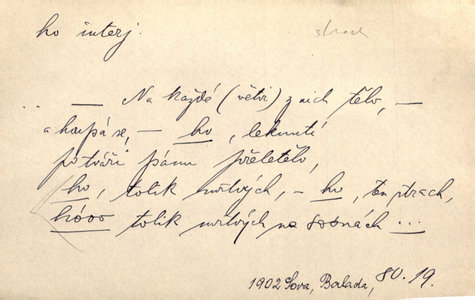 ho interj.
strach
.. — Na každé (větvi) z nich tělo, —
a houpá se, — ho, leknutí
po tváři pánu přeletělo,
ho, tolik mrtvých, — ho, ten strach,
hóoo tolik mrtvých na sosnách ...
1902 Sova, Balada, 80. 19.